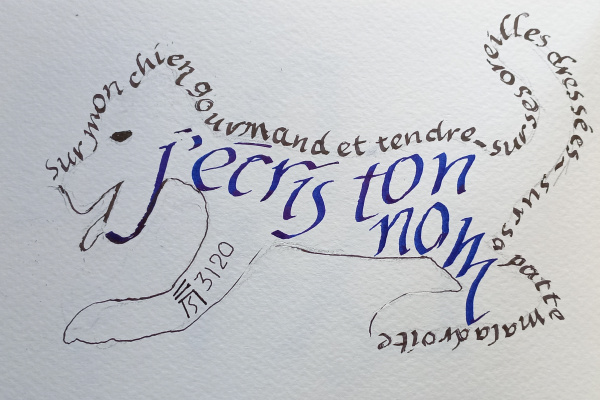 sur mon chien gourmand et tendre - sur ses oreilles dressées - sur sa patte maladroite
j'écris ton
nom
3120